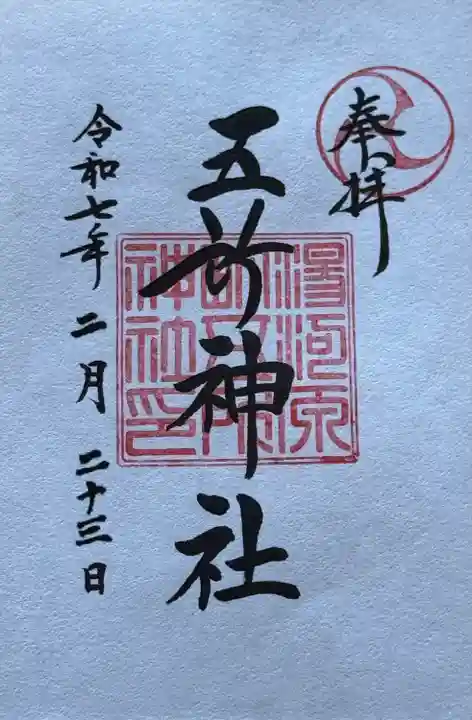 奉拝
五所神社
湯河原
鎮座五所
神社印
令和七年 二月 二十三日